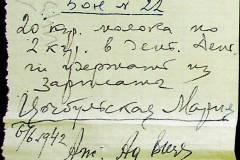 Бон № 22
20 кгр. молока по
2 кгр. в день. День-
ги удержат из
зарплаты
Мария
6/6 1942